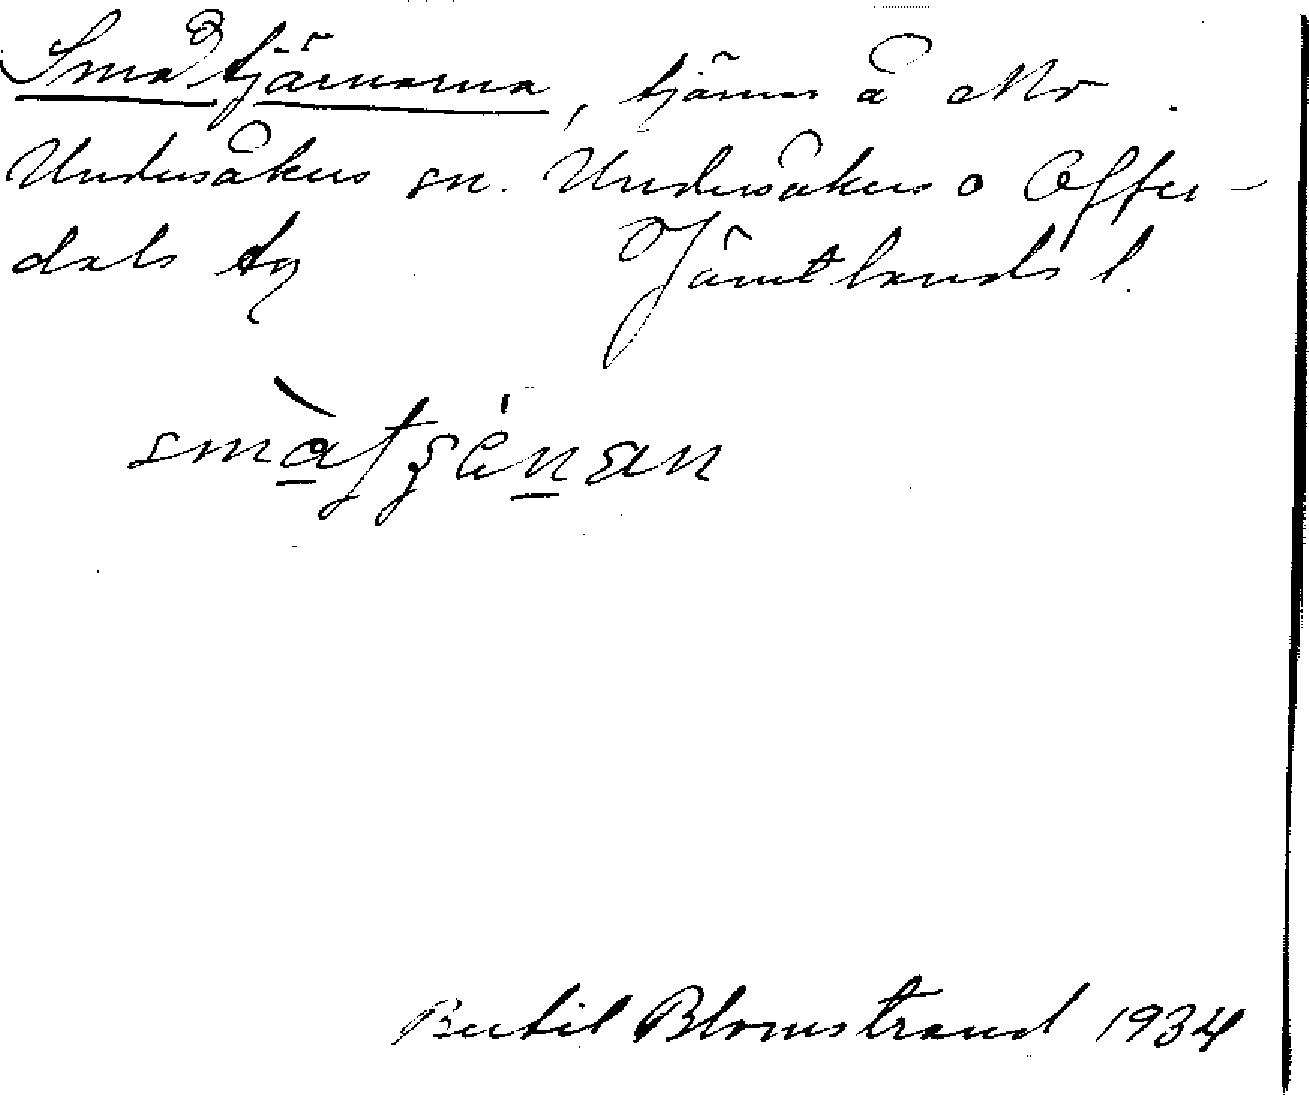 Småtjärnarna, tjärnar å Mo
Undersåkers sn. Undersåkers o Offer-
dals tg Jämtlands l.
Bertil Blomstrand 1934